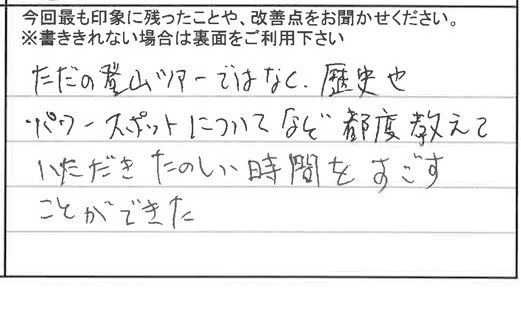 今回最も印象に残ったことや、改善点をお聞かせください。
※書ききれない場合は裏面をご利用下さい
ただの登山ツアーではなく、歴史や
パワースポットについてなど都度教えて
いただきたのしい時間をすごす
ことができた